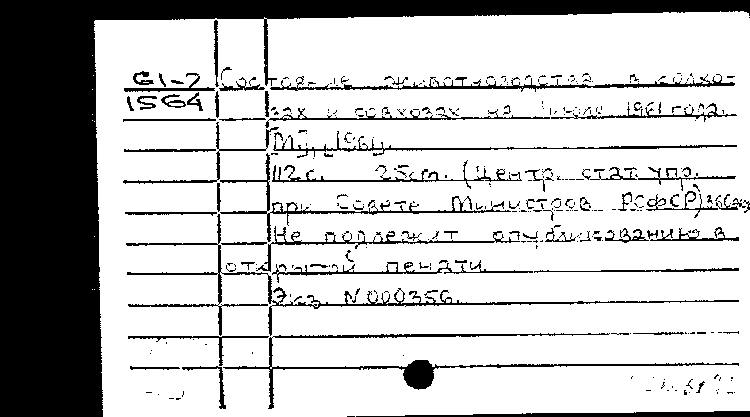 61-7 Состояние животноводства в колхо-
1564 зах и совхозах на 1 июля 1961 года.
М., 1961.
112 с. 25 cm. (Центр. стат. упр.
при Совете Министров РСФСР)
Не подлежит опубликованию в
открытой печати.
Экз. N 000356.